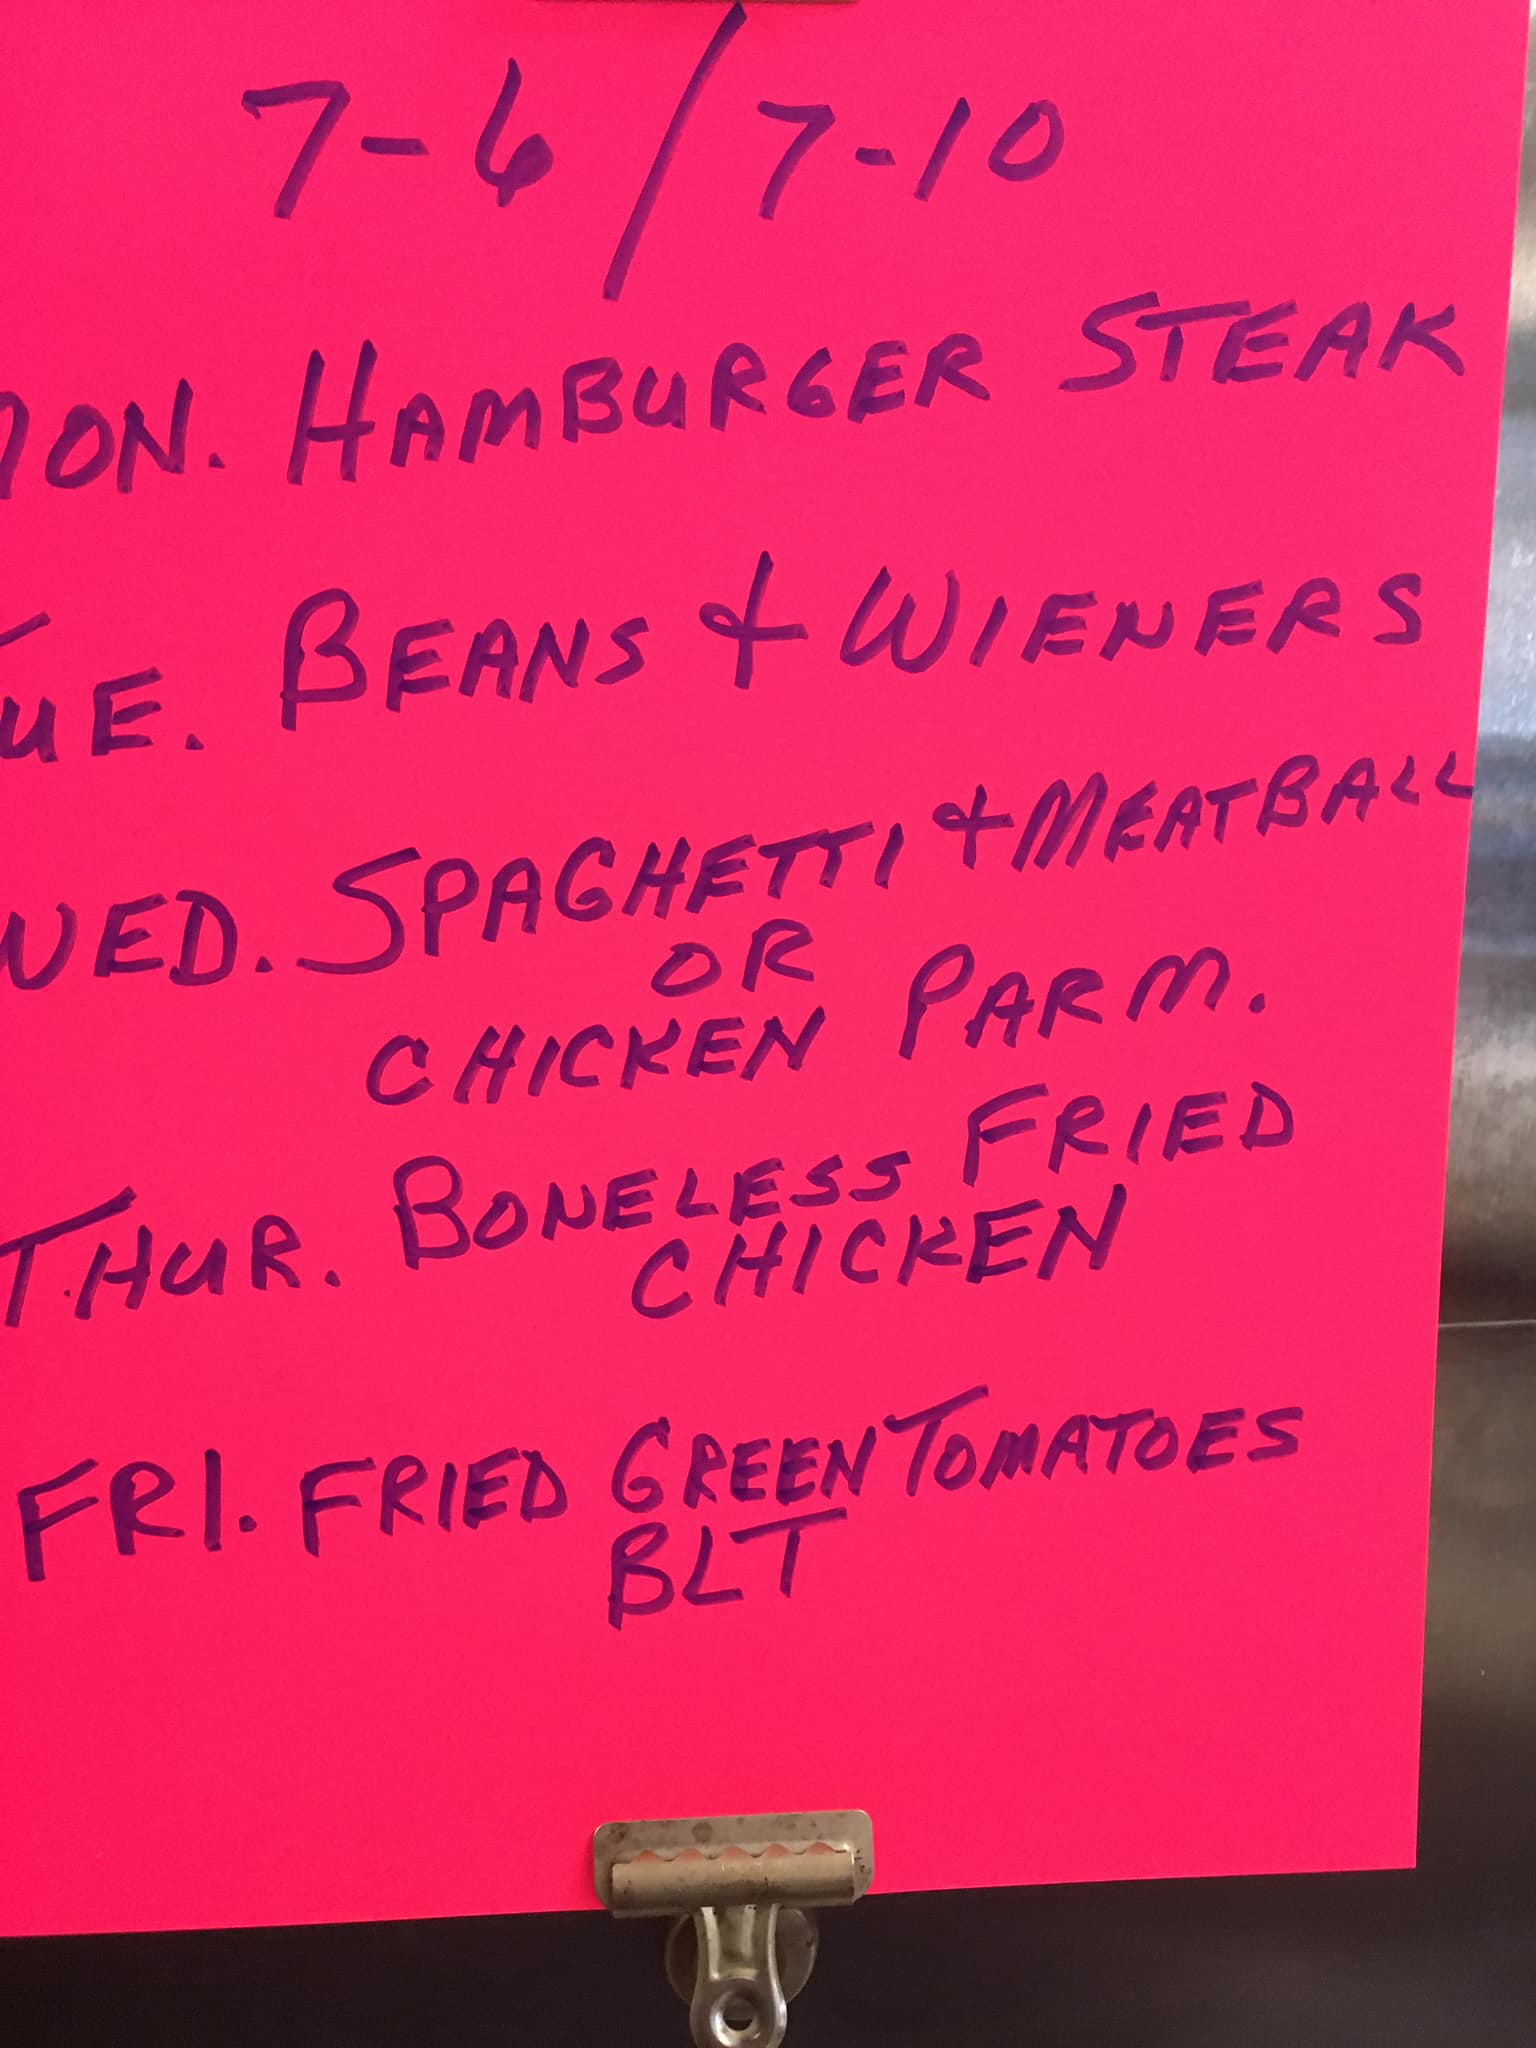 7-6/7-10
MON. HAMBURGER STEAK
TUE. BEANS & WIENERS
WED. SPAGHETTI & MEATBALL
OR
CHICKEN PARM.
THUR. BONELESS FRIED
CHICKEN
FRI. FRIED GREEN TOMATOES
BLT